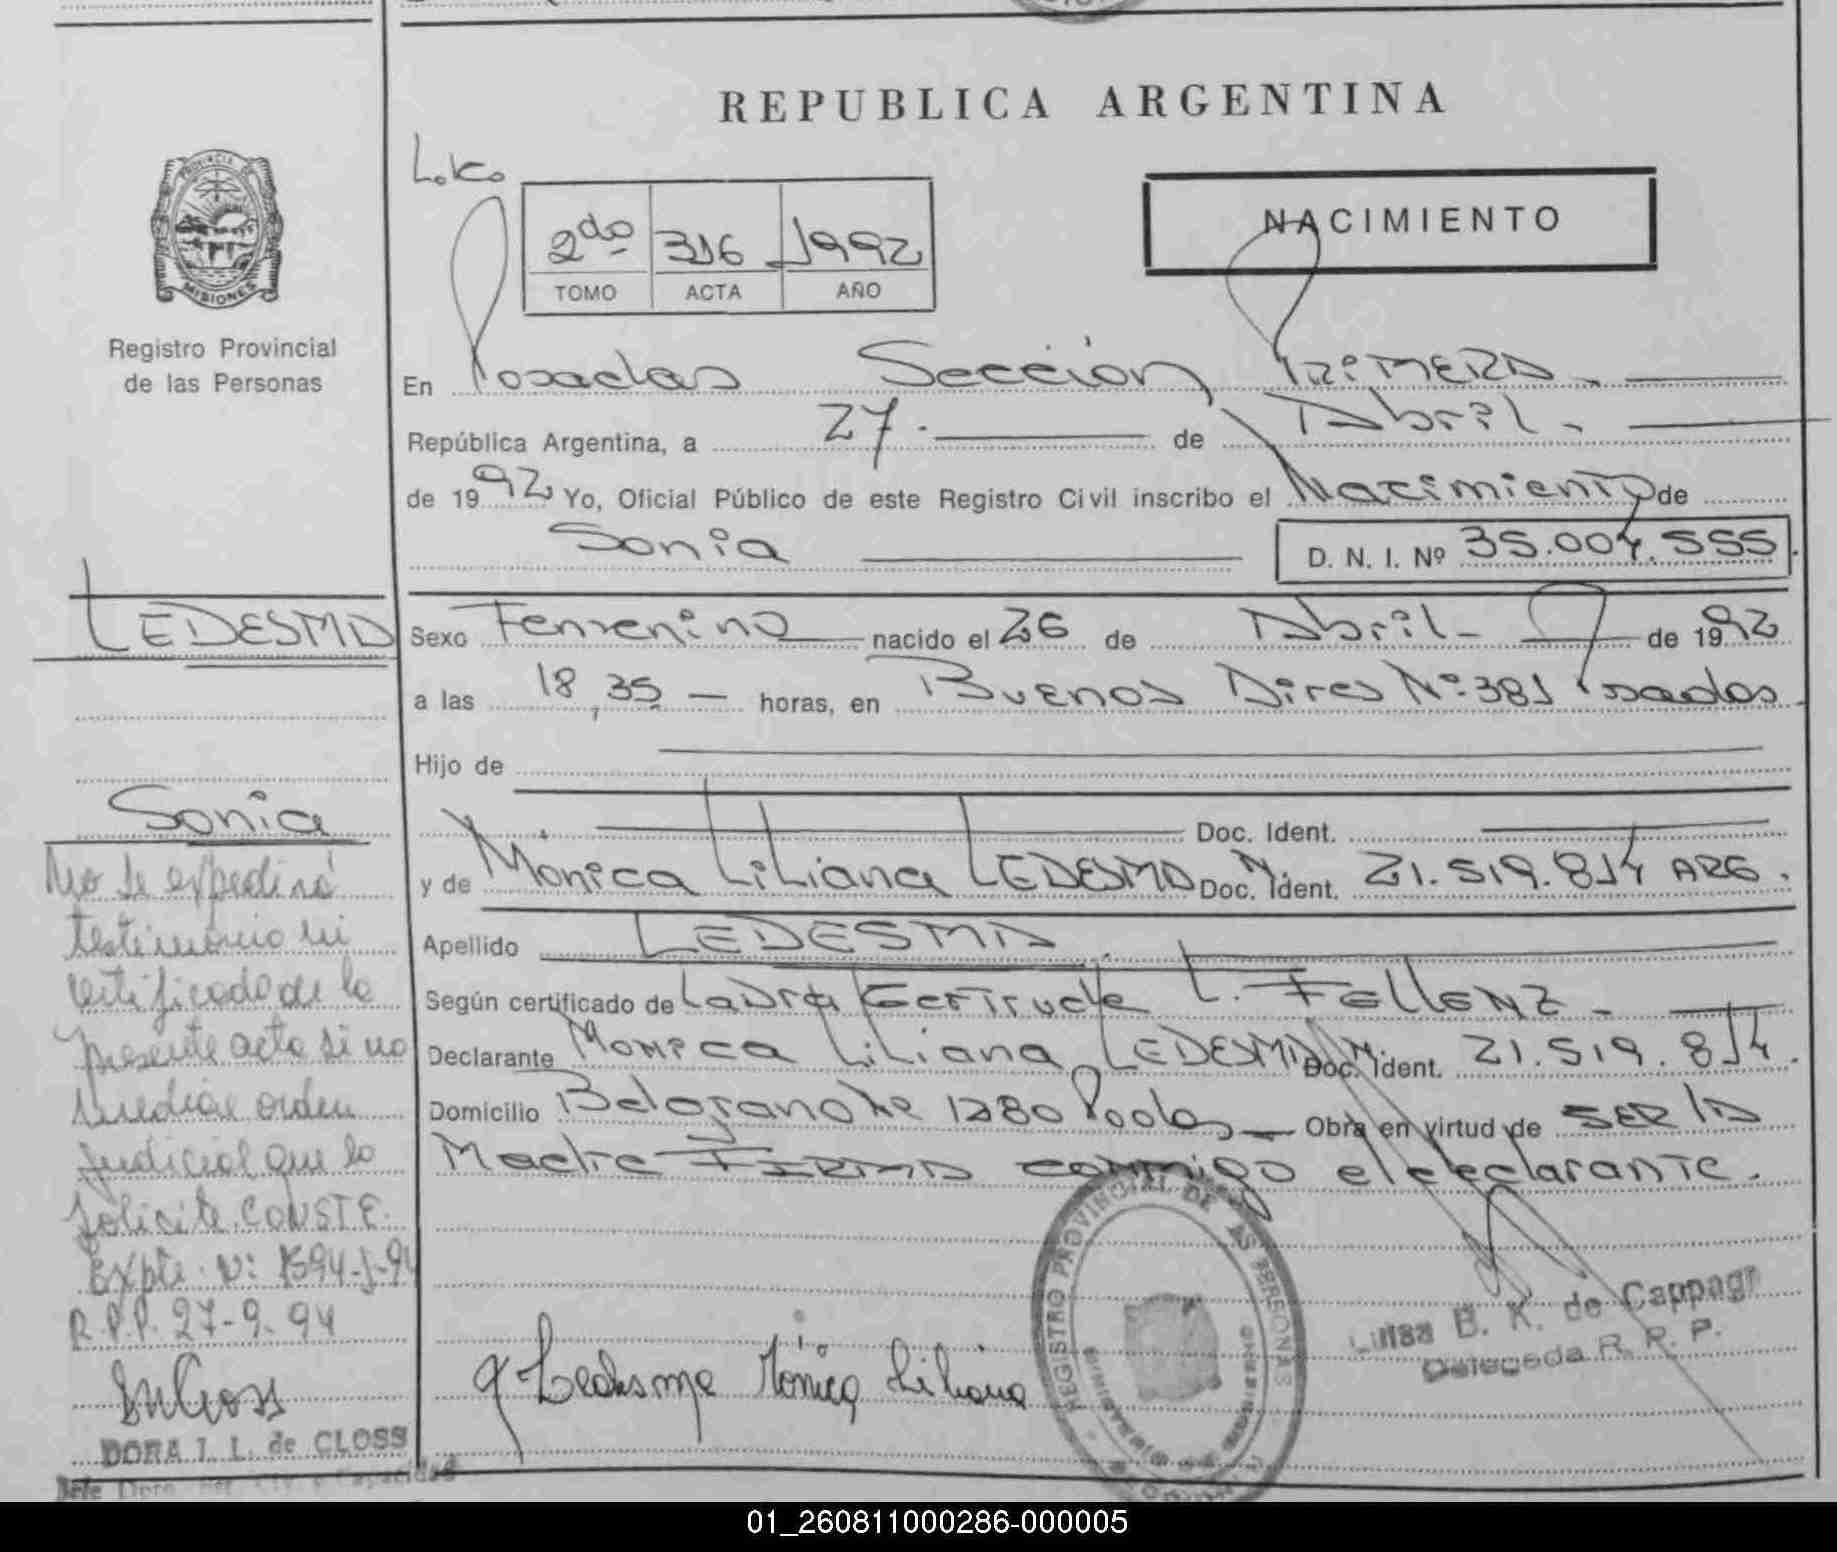 REPUBLICA ARGENTINA
PROVINCIA DE
MISIONES
Registro Provincial
de las Personas
2do 316 1992
TOMO ACTA AÑO
NACIMIENTO
En Posadas Sección Primera.
República Argentina, a 27. de Abril.
de 1992 Yo, Oficial Público de este Registro Civil inscribo el Nacimiento de
Sonia D. N. I. Nº 35.004.555.
LEDESMA
Sexo Femenino nacido el 26 de Abril- de 1992
a las 18,35 — horas, en Buenos Aires Nº 381 Posadas.
Hijo de
Sonia
Doc. Ident.
y de Mónica Liliana LEDESMA Doc. Ident. 21.519.814 ARG.
Apellido LEDESMA.
Según certificado de Gertrude L. Fellenz
Declarante Monica Liliana LEDESMA Doc. Ident. 21.519.814.
Domicilio Belgrano 1280 Obra en virtud de SER LA
Madre FIRMA conmigo el declarante.
No se expedirá
testimonio ni
certificado de la
presente acta si no
mediare orden
judicial que lo
solicite. CONSTE.
Expte. Nº:
R.P.P. 27-9-94
DORA I. L. de CLOSS
Ledesma Mónica Liliana
REGISTRO PROVINCIAL DE LAS PERSONAS
Luisa B. K. de
Delegada R. R. P.
01_260811000286-000005